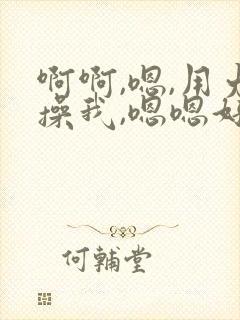 啊啊,嗯,用大
操我,嗯嗯好
何輔堂